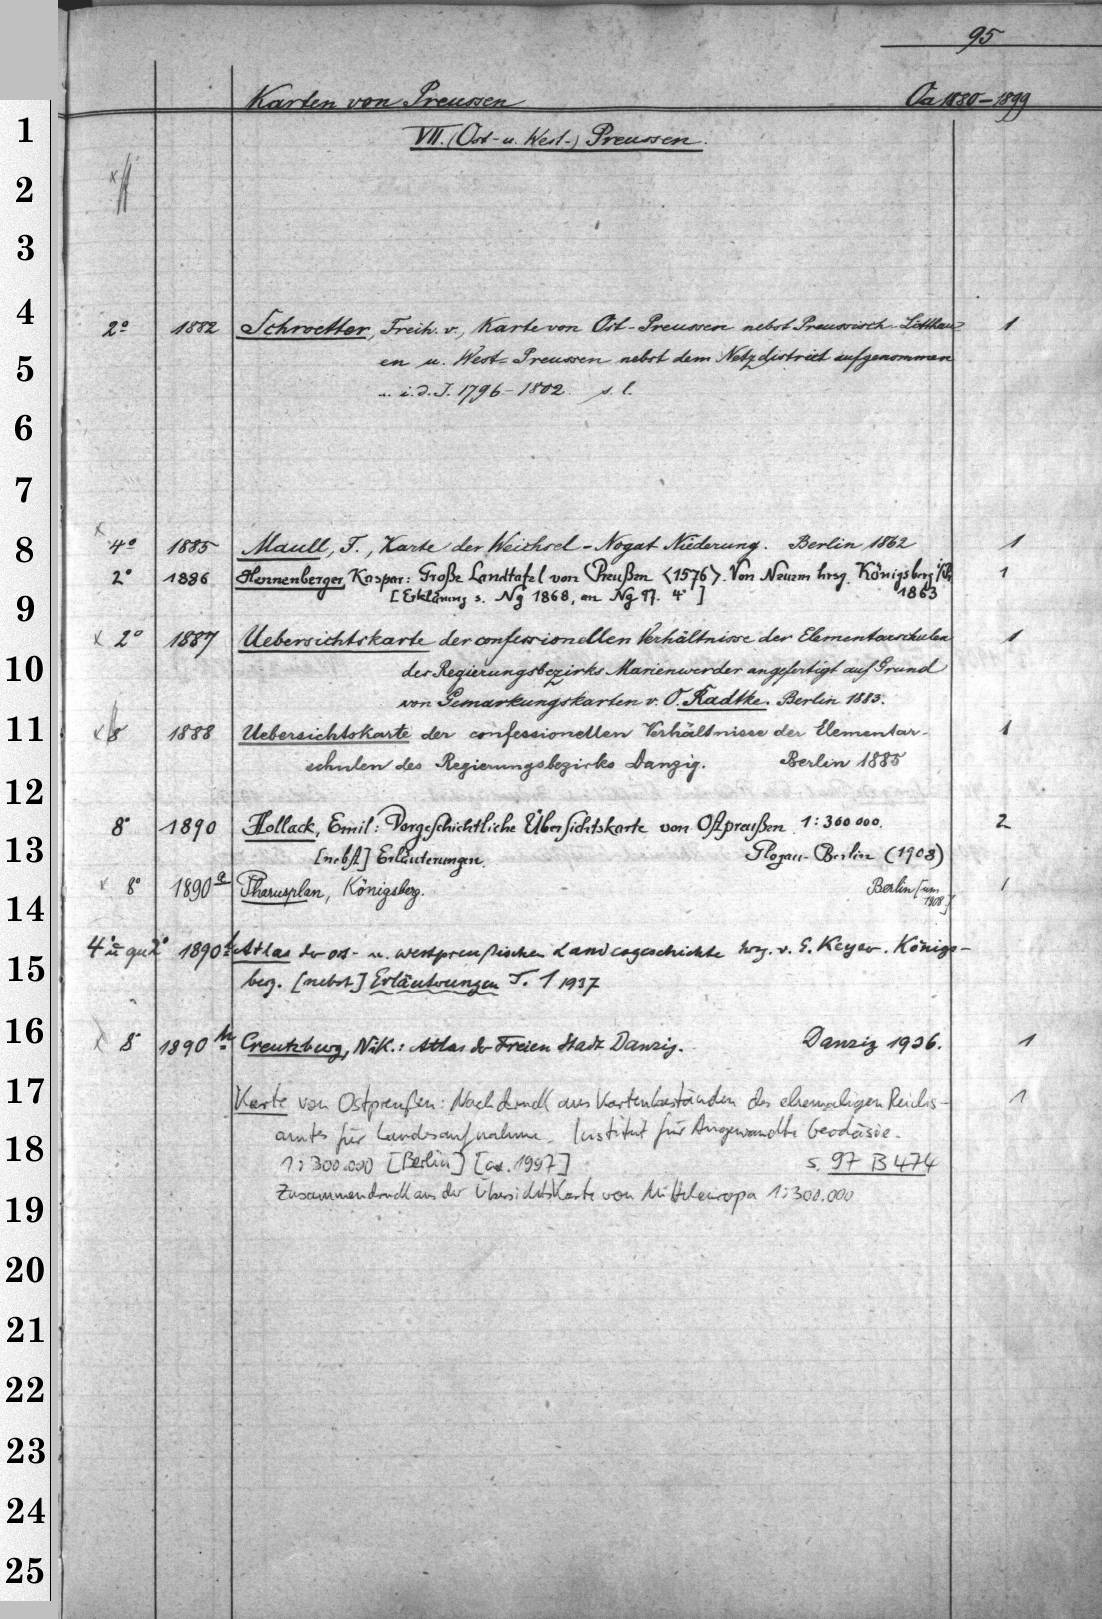 95
Karten von Preussen Oa 1880-1899
1
VII. (Ost- u. West-) Preussen.
2
3
4
2° 1882 Schroetter, Freih. v., Karte von Ost-Preussen nebst Preussisch Litthau- 1
5
en u. West-Preussen nebst dem Netzdistrict aufgenommen
... i. d. J. 1796-1802. s. l.
6
7
8
x 4° 1885 Maull, F., Karte der Weichsel-Nogat Niederung. Berlin 1862 1
2° 1886 Hennenberger, Kaspar: Große Landtafel von Preußen <1576>. Von Neuem hrsg. Königsberg 1
9
[Erklärung s. Ng 1868, an Ng 97. 4°] 1863
x 2° 1887 Uebersichtskarte der confessionellen Verhältnisse der Elementarschulen 1
10
des Regierungsbezirks Marienwerder angefertigt auf Grund
von Gemarkungskarten v. O. Radtke. Berlin 1883.
11
x 8° 1888 Uebersichtskarte der confessionellen Verhältnisse der Elementar- 1
schulen des Regierungsbezirks Danzig. Berlin 1885
12
8° 1890 Hollack, Emil: Vorgeschichtliche Übersichtskarte von Ostpreußen 1:300000. 2
13
[nebst] Erläuterungen. Glogau-Berlin (1908)
x 8° 1890a Pharusplan, Königsberg. Berlin [um 1908] 1
14
4° u. qu2° 1890 Atlas der ost- u. westpreußischen Landesgeschichte hrsg. v. E. Keyser. Königs-
15
berg. [nebst] Erläuterungen T. 1 1937
16
x 8° 1890 Creutzburg, Nik.: Atlas der Freien Stadt Danzig. Danzig 1936. 1
17
Karte von Ostpreußen: Nachdruck aus Kartenbeständen des ehemaligen Reichs- 1
18
amtes für Landesaufnahme. Institut für Angewandte Geodäsie.
1:300.000 [Berlin] [ca. 1997] s. 97 B 474
19
Zusammendruck aus der Übersichtskarte von Mitteleuropa 1:300.000
20
21
22
23
24
25